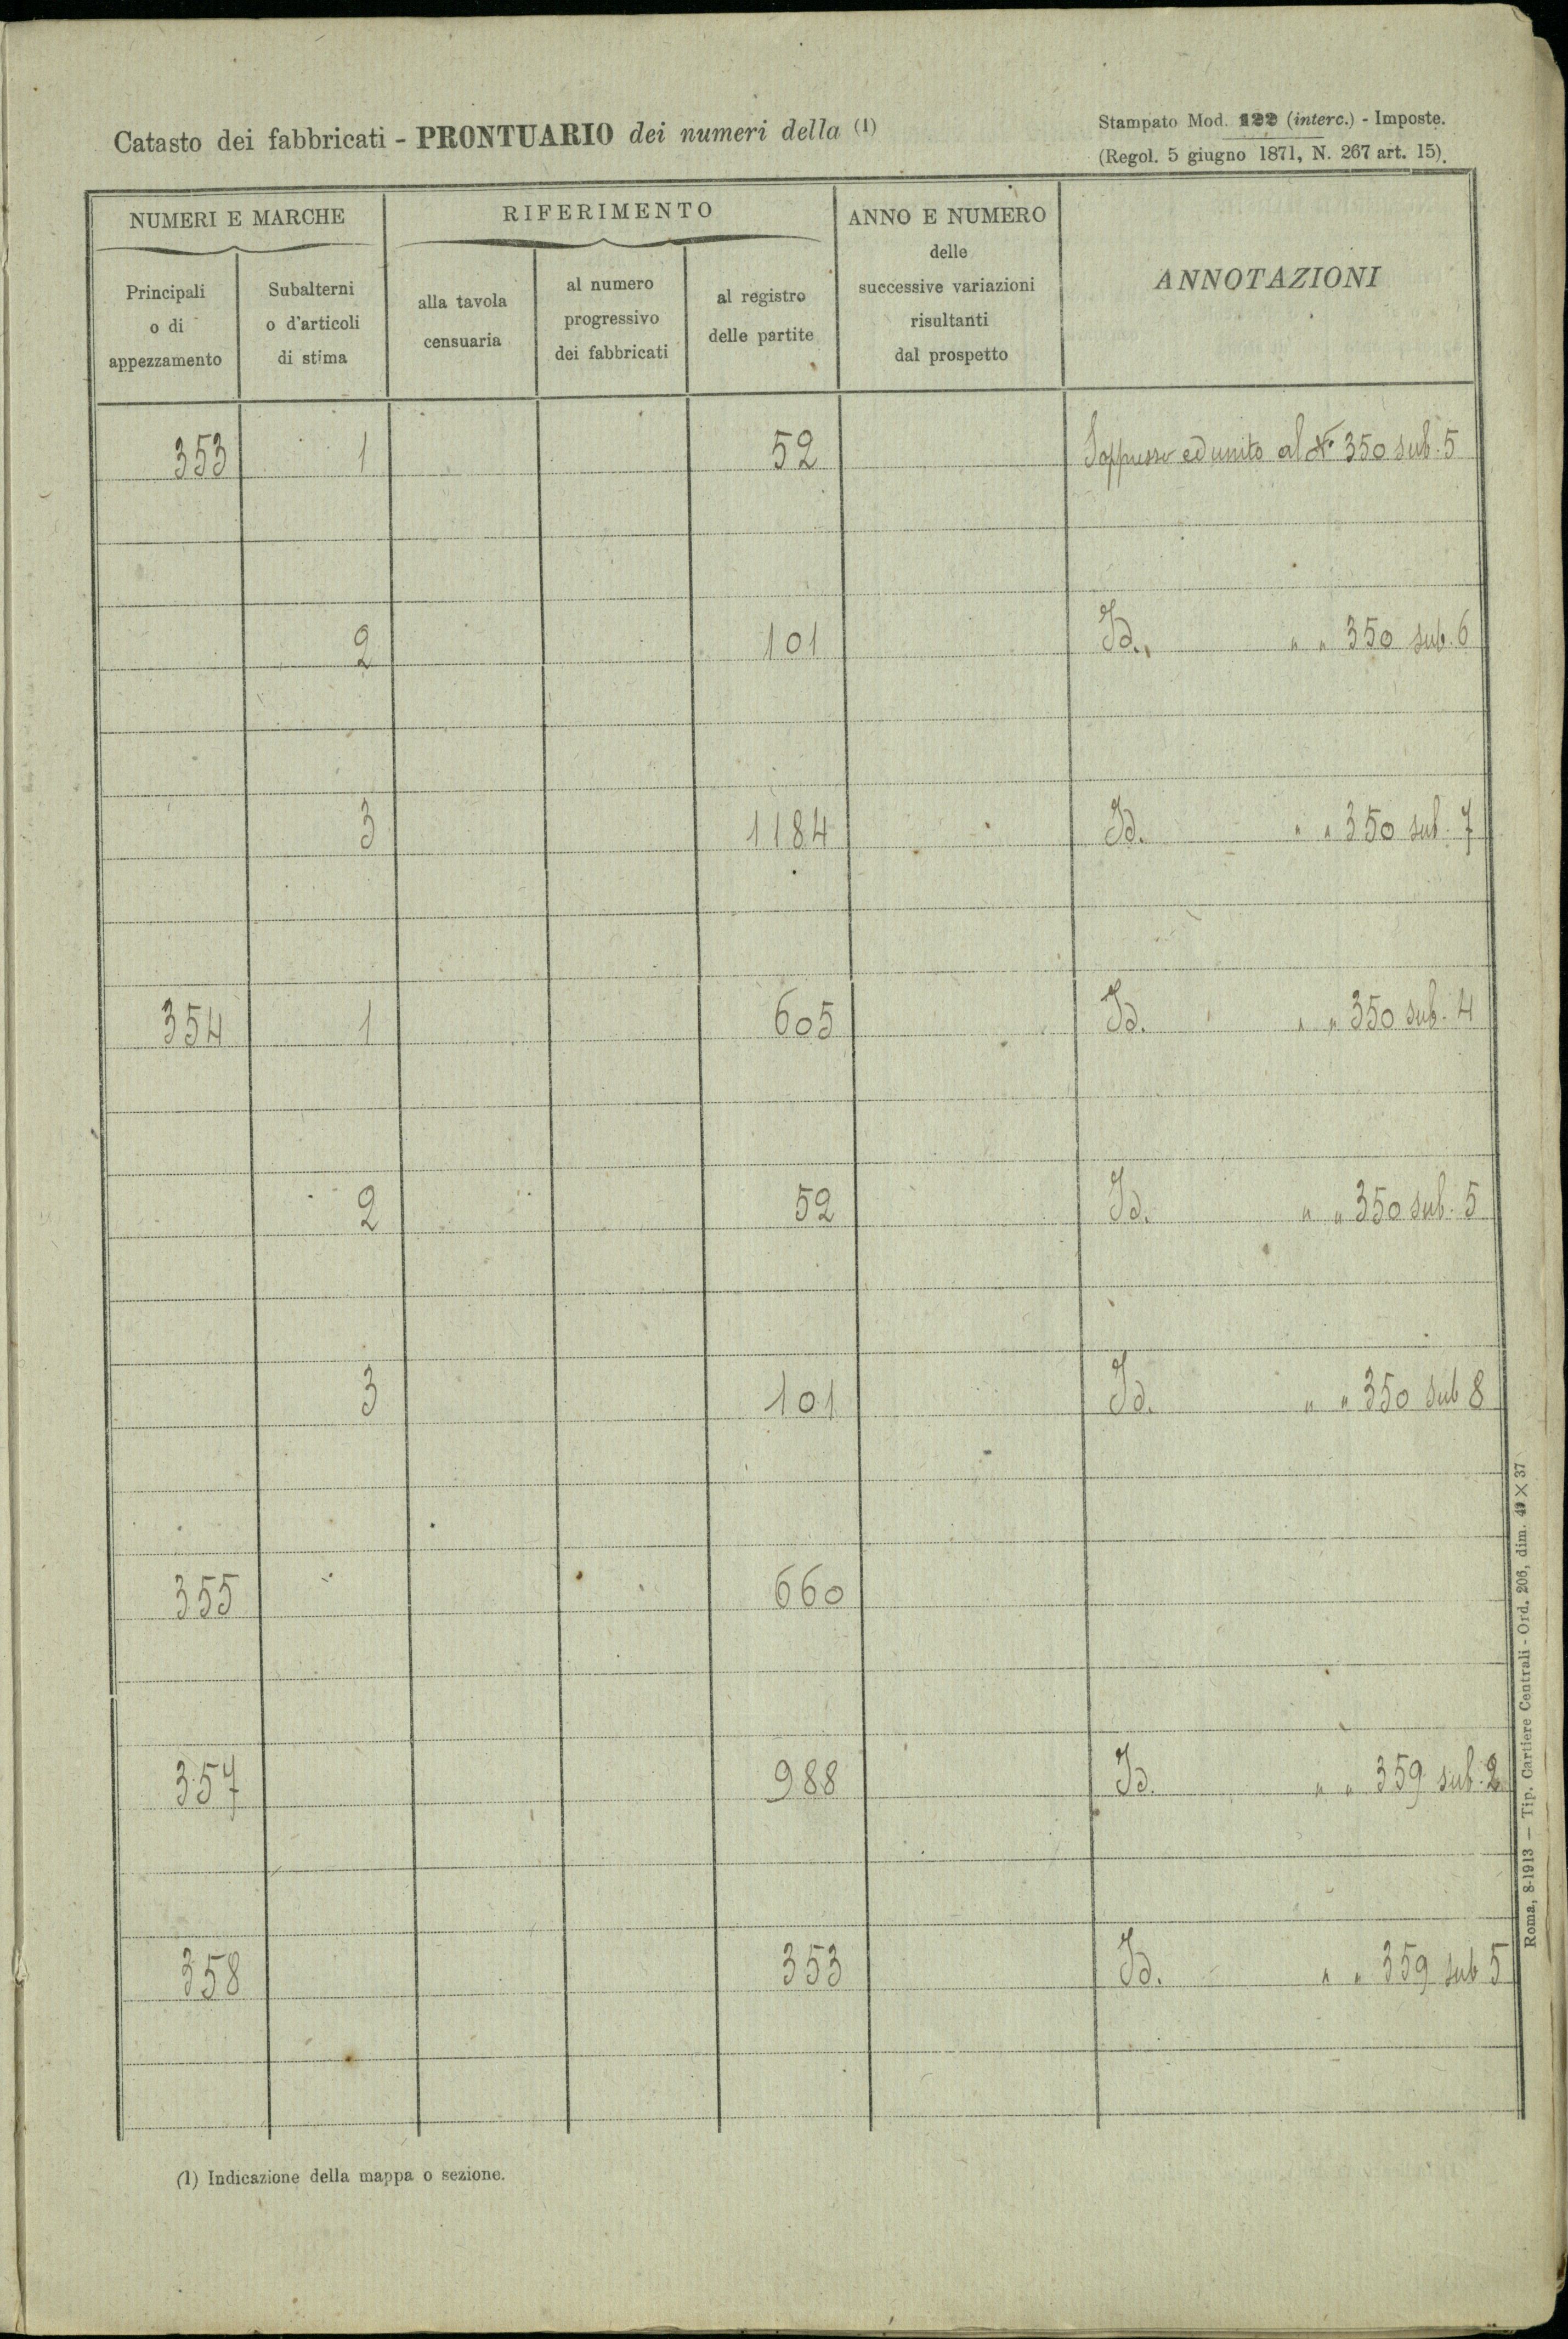 Catasto dei fabbricati - PRONTUARIO dei numeri della (1)
Stampato Mod. 122 (interc.) - Imposte.
(Regol. 5 giugno 1871, N. 267 art. 15).
NUMERI E MARCHE
RIFERIMENTO
ANNO E NUMERO
delle
successive variazioni
risultanti
dal prospetto
ANNOTAZIONI
Principali
o di
appezzamento
Subalterni
o d'articoli
di stima
alla tavola
censuaria
al numero
progressivo
dei fabbricati
al registro
delle partite
353 1 52 Soppresso ed unito al N° 350 sub. 5
2 101 Id. " " 350 sub. 6
3 1184 Id. " " 350 sub. 7
354 1 605 Id. " " 350 sub. 4
2 52 Id. " " 350 sub. 5
3 101 Id. " " 350 sub 8
355 660
357 988 Id. " " 359 sub. 2
358 353 Id. " " 359 sub 5
(1) Indicazione della mappa o sezione.
Roma, 8-1913 — Tip. Cartiere Centrali - Ord. 206, dim. 49 × 37